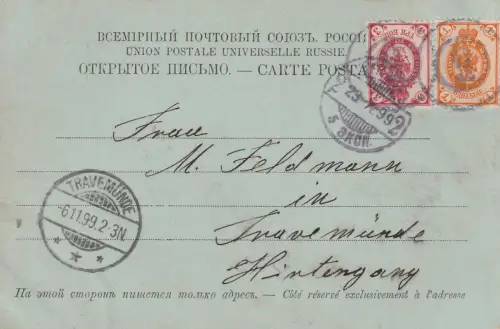 ВСЕМІРНЫЙ ПОЧТОВЫЙ СОЮЗЪ. РОССІ
UNION POSTALE UNIVERSELLE RUSSIE.
ОТКРЫТОЕ ПИСЬМО. — CARTE POSTA
5 ЭКСП.
Frau
M. Feldmann
in
Travemünde
Hirtengang
TRAVEMÜNDE
-6.11.99.2-3N.
На этой сторонѣ пишется только адресъ. — Côté réservé exclusivement à l'adresse